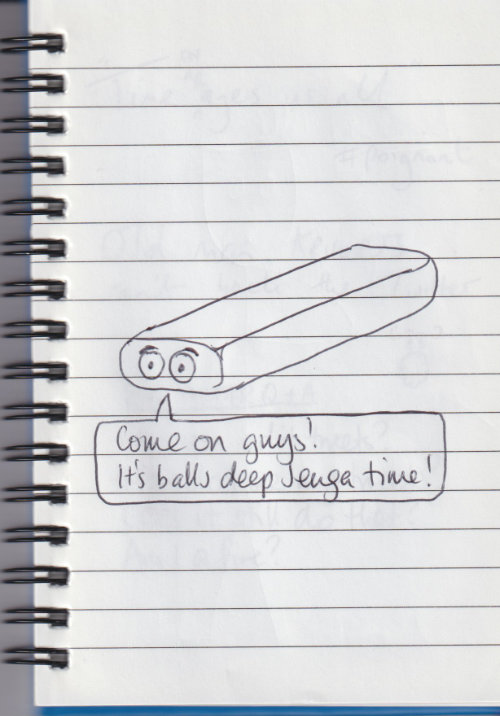 Come on guys!
It's balls deep Jenga time!